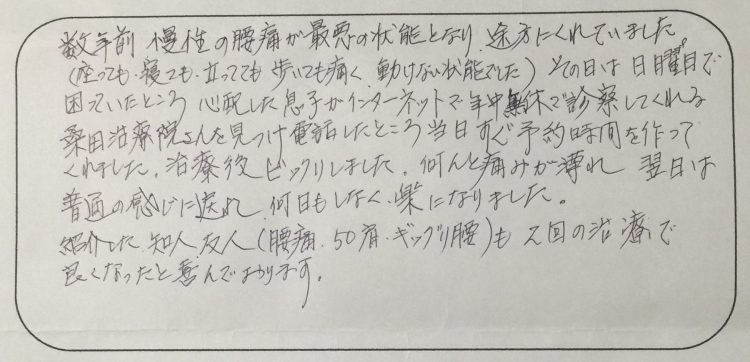 数年前 慢性の腰痛が最悪の状態となり、途方にくれていました。
(座っても・寝ても・立っても 歩いても痛く、動けない状態でした) その日は 日曜日で
困っていたところ 心配した息子がインターネットで年中無休で診察してくれる
桑田治療院さんを見つけ電話したところ当日すぐ予約時間を作って
くれました。治療後ビックリしました。何んと痛みが薄れ 翌日は
普通の感じに戻れ 何日もしなく 楽になりました。
紹介した 知人、友人(腰痛・50肩・ギックリ腰)も 2回の治療で
良くなったと喜んでおります。